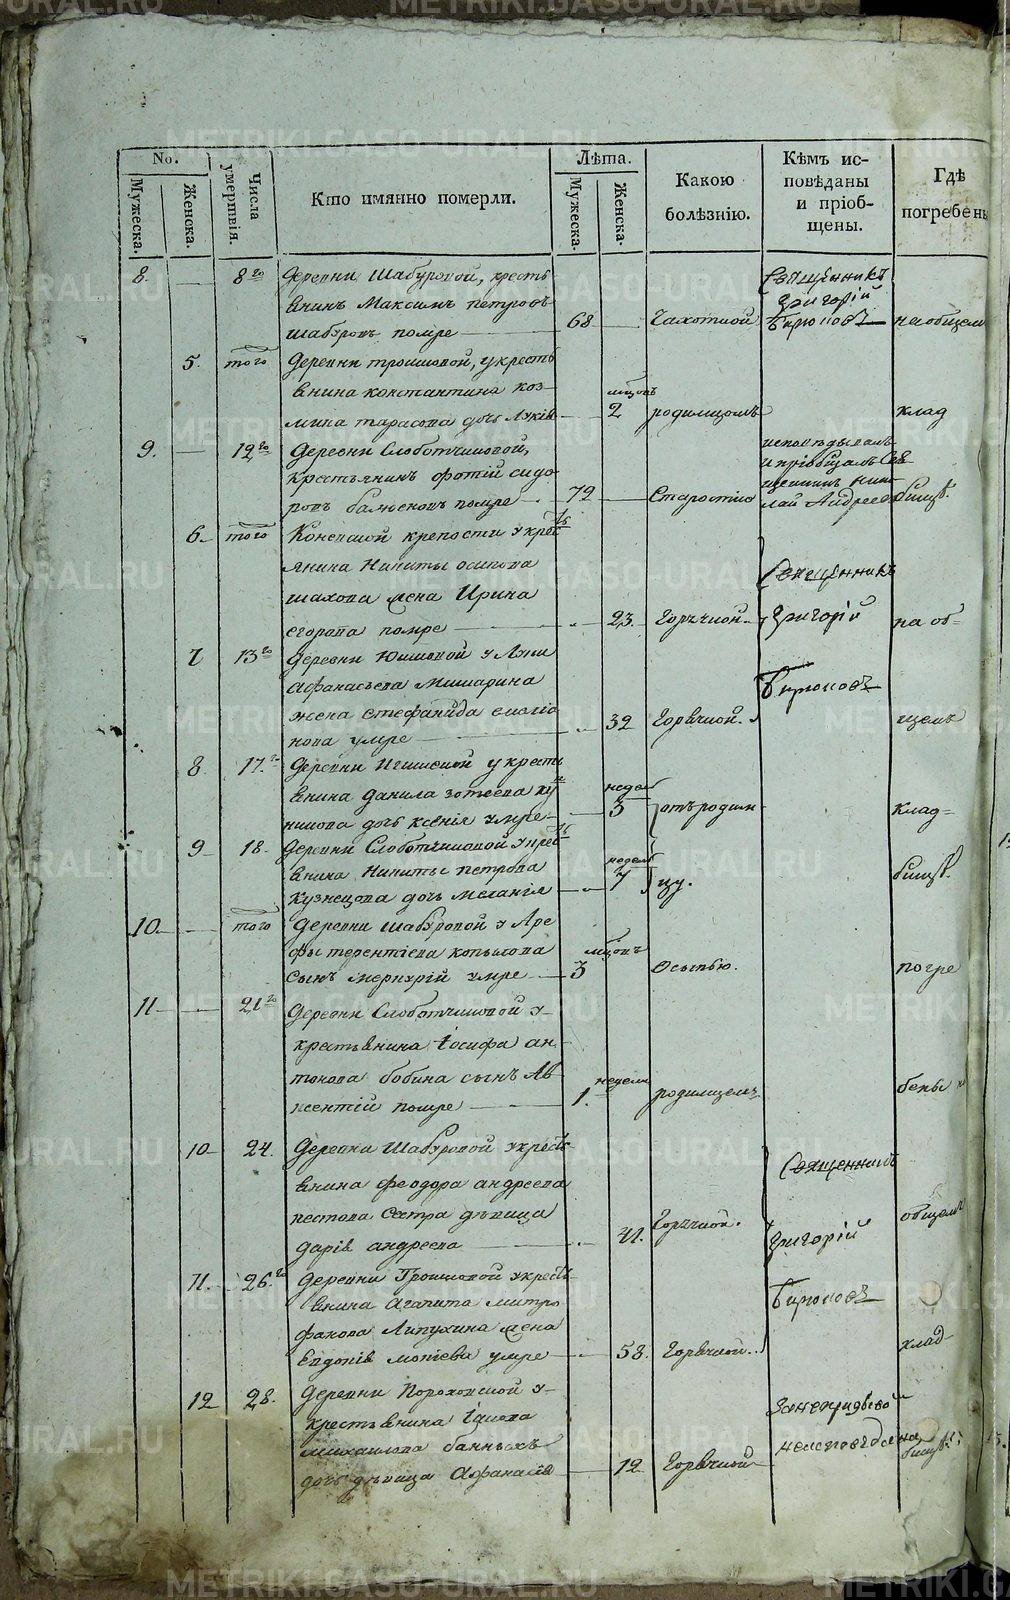 METRIKI.GASO-URAL.RU
No.
Мужеска.
Женска.
Числа умертвія.
Кто имянно померли.
Лѣта.
Мужеска.
Женска.
Какою болѣзнію.
Кѣмъ исповѣданы и пріобщены.
Гдѣ погребены
8. — 8го Деревни Шабуровой, кресть
янинъ Максимъ Петровъ
Шабуровъ помре — 68 — Чахоткой
Священникъ
Григорій
Бирюковъ — на общем
5. того Деревни Трошковой, у кресть
янина Константина Коз-
мина Тарасова дочь
мцовъ
2 родимцомъ клад
9. — 12го Деревни Слободчиковой,
крестьянинъ Фотій Сидо-
ровъ помре — 72 — Старостію
исповѣдывалъ
и пріобщалъ Свя
щенникъ Нико
лай Андреевъ
бищѣ.
6. того крепости у крест
янина Никиты Осипова
Шахова жена Ирина
Егорова помре — 23. Горячкой
Священникъ
Григорій на об=
7 13го Деревни Юшковой у
Афанасьева Мишарина
жена Стефанида
умре — 32 Горячкой.
Бирюковъ
щемъ
8. 17го Деревни у кресть
янина Данила Зотеева
дочь Ксенія умре —
недел
3 отъ родим-
клад=
9 18. Деревни Слободчиковой у крес
янина Никиты Петрова
Кузнецова дочь Меланія
недель
7 цу.
бищѣ.
10. — того Деревни Шабуровой у Аре
фы Терентіева Копылова
сынъ Меркурій умре —
мцовъ
3 Осыпью.
погре
11 — 21го Деревни Слободчиковой у
крестьянина Іосифа Ан-
тонова Бобина сынъ Ав
ксентій помре —
недели
1. родимцемъ.
бены
10 24. Деревни Шабуровой у крест
янина Феодора Андреева
Пестова сестра дѣвица
Дарія Андреева — 41. Горячкой.
Священникъ
Григорій
общемъ
11. 26.го Деревни Трошковой у крест
янина Агапита Митро
фанова Липухина жена
Евдокія умре — 58. Горячкой..
Бирюковъ
клад-
12 28. Деревни у
крестьянина Іакова
Михаилова Банныхъ
дочь дѣвица Афанасія — 12 Горячкой
неисповѣдана
бищѣ.